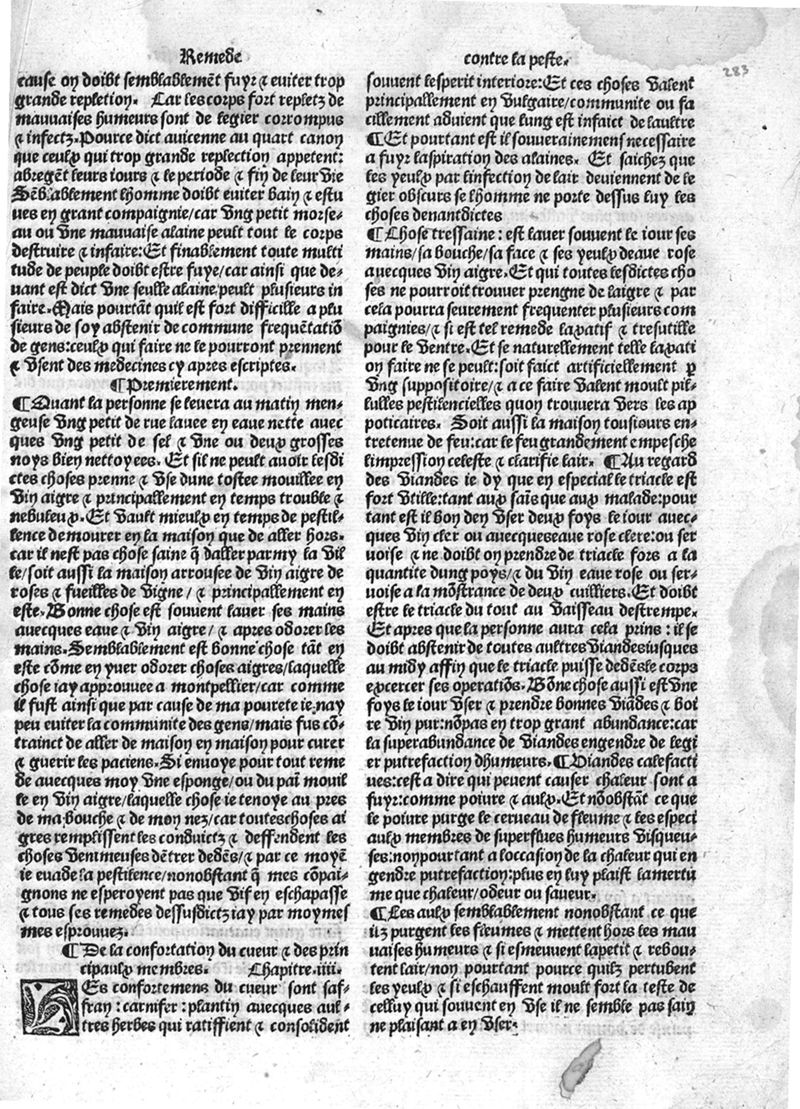 Remede
cause on doibt semblablemēt fuyr ⁊ euiter trop
grande repletion. Car les corps fort repletz de
mauuaises humeurs sont de legier corrompus
⁊ infectz. Pource dict auicenne au quart canon
que ceulx qui trop grande replection appetent:
abregēt leurs iours ⁊ le periode ⁊ fin de leur vie
Sēblablement lhomme doibt euiter bain ⁊ estu
ues en grant compaignie/car vng petit morse-
au ou vne mauuaise alaine peult tout le corps
destruire ⁊ infaire: Et finablement toute multi
tude de peuple doibt estre fuye/car ainsi que de-
uant est dict vne seulle alaine peult plusieurs in
faire. Mais pourtāt quil est fort difficille a plu
sieurs de soy abstenir de commune frequētatiō
de gens: ceulx qui faire ne le pourront prennent
⁊ vsent des medecines cy apres escriptes.
¶Premierement.
¶Quant la personne se leuera au matin men-
geuse vng petit de rue lauee en eaue nette auec
ques vng petit de sel ⁊ vne ou deux grosses
noys bien nettoyees. Et sil ne peult auoir lesdi
ctes choses prenne ⁊ vse dune tostee mouillee en
vin aigre ⁊ principallement en temps trouble ⁊
nebuleux. Et vault mieulx en temps de pestil-
lence demourer en la maison que de aller hors.
car il nest pas chose saine q̄ daller parmy la vil
le/soit aussi la maison arrousee de vin aigre de
roses ⁊ fueilles de vigne/ ⁊ principalement en
este. Bonne chose est souuent lauer ses mains
auecques eaue ⁊ vin aigre/ ⁊ apres odorer les
mains. Semblablement est bonne chose tāt en
este cōme en yuer odorer choses aigres/laquelle
chose iay approuuee a montpellier/car comme
il fust ainsi que par cause de ma pourete ie nay
peu euiter la communite des gens/mais fus cō-
trainct de aller de maison en maison pour curer
⁊ guerir les paciens. Si enuoye pour tout reme
de auecques moy vne esponge/ou du pain mouil
le en vin aigre/laquelle chose ie tenoye au pres
de ma bouche ⁊ de mon nez/car toutes choses ai
gres remplissent les conduictz ⁊ deffendent les
choses venimeuses dētrer dedēs/⁊ par ce moyē
ie euade la pestilence/nonobstant q̄ mes cōpai-
gnons ne esperoyent pas que vif en eschapasse
⁊ tous ses remedes dessusdictz iay par moymes
mes esprouuez.
¶De la confortation du cueur ⁊ des prin
cipaulx membres. Chapitre.iiii.
LEs confortemens du cueur sont saf-
fray: carnifer: plantin auecques aul-
tres herbes qui ratiffient ⁊ consolident
contre la peste.
283
souuent lesperit interiore: Et ces choses valent
principallement en vulgaire/communite ou fa
cillement aduient que lung est infaict de laultre
¶Et pourtant est il souuerainemens necessaire
a fuyr laspiration des alaines. Et saichez que
les yeulx par linfection de lair deuiennent de le
gier obscurs se lhomme ne porte dessus luy les
choses deuantdictes
¶Chose tressaine: est lauer souuent le iour ses
mains/sa bouche/sa face ⁊ ses yeulx deaue rose
auecques vin aigre. Et qui toutes lesdictes cho
ses ne pourroit trouuer prengne de laigre ⁊ par
cela pourra seurement frequenter plusieurs com
paignies/⁊ si est tel remede laxatif ⁊ tresutille
pour le ventre. Et se naturellement telle laxati
on faire ne se peult: soit faict artificiellement ꝑ
vng suppositoire/⁊ a ce faire valent moult pil-
lulles pestilencielles quon trouuera vers les ap
poticaires. Soit aussi la maison tousiours en-
tretenue de feu: car le feu grandement empesche
limpression celeste ⁊ clarifie lair. ¶Au regard
des viandes ie dy que en especial le triacle est
fort vtille: tant aux sais̄ que aux malade: pour
tant est il bon den vser deux foys le iour auec-
ques vin cler ou auecques eaue rose clere: ou ser
uoise ⁊ ne doibt on prendre de triacle fors a la
quantite dung poys/⁊ du vin eaue rose ou ser-
uoise a la mōstrance de deux cuilliers. Et doibt
estre le triacle du tout au vaisseau destrempe.
Et apres que la personne aura cela prins: il se
doibt abstenir de toutes aultres viandes iusques
au midy affin que le triacle puisse dedēs le corps
excercer ses operatiōs. Bōne chose aussi est vne
foys le iour vser ⁊ prendre bonnes viādes ⁊ boi
re vin pur: nōpas en trop grant abundance: car
la superabundance de viandes engendre de legi
er putrefaction dhumeurs. ¶Viandes calefacti
ues: cest a dire qui peuent causer chaleur sont a
fuyr: comme poiure ⁊ aulx. Et nōobstāt ce que
le poiure purge le cerueau de fleume ⁊ les especi
aulx membres de superflues humeurs visqueu-
ses: non pourtant a loccasion de la chaleur qui en
gendre putrefaction: plus en luy plaist lamertu
me que chaleur/odeur ou saueur.
¶Les aulx semblablement nonobstant ce que
ilz purgent les fleumes ⁊ mettent hors les mau
uaises humeurs ⁊ si esmeuuent lapetit ⁊ rebou-
tent lair/non pourtant pource quilz pertubent
les yeulx ⁊ si eschauffent moult fort la teste de
celluy qui souuent en vse il ne semble pas sain
ne plaisant a en vser.